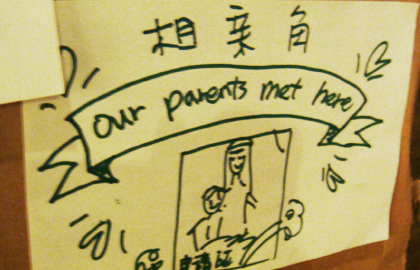 相亲角
our parents met here